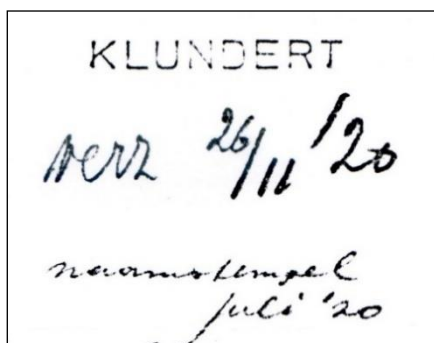 KLUNDERT
verz 26/11 '20
naamstempel
juli '20